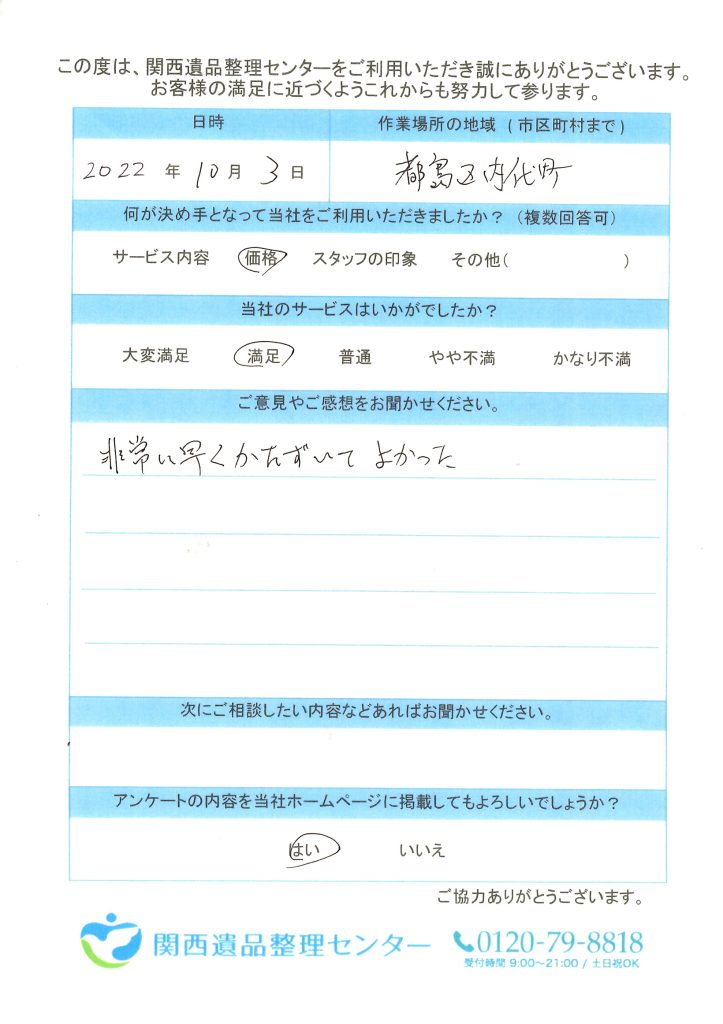 この度は、関西遺品整理センターをご利用いただき誠にありがとうございます。
お客様の満足に近づくようこれからも努力して参ります。
日時
作業場所の地域（市区町村まで）
2022 年 10 月 3 日
都島区内代町
何が決め手となって当社をご利用いただきましたか？（複数回答可）
サービス内容 価格 スタッフの印象 その他（ ）
当社のサービスはいかがでしたか？
大変満足 満足 普通 やや不満 かなり不満
ご意見やご感想をお聞かせください。
非常に早くかたずいてよかった
次にご相談したい内容などあればお聞かせください。
アンケートの内容を当社ホームページに掲載してもよろしいでしょうか？
はい いいえ
ご協力ありがとうございます。
関西遺品整理センター
0120-79-8818
受付時間 9:00～21:00 / 土日祝OK